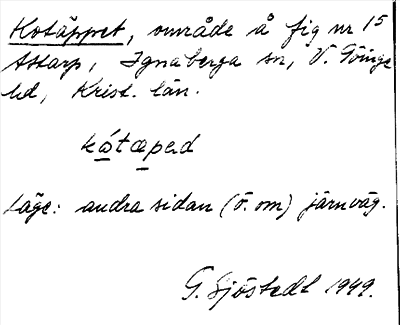 Kotäppet, område å fig nr 15
Attarp, Ignaberga sn, V. Göinge
hd, Krist. län.
kó̱tæ̱pəd
Läge: andra sidan (ö. om) järnväg.
G. Sjöstedt 1949.